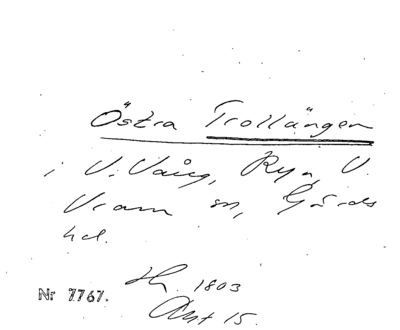 Östra Trollängen
i V. Vång, Ryn, V.
Vram sn, Gärds
hd.
Nr 7767.
1803
Akt 15.